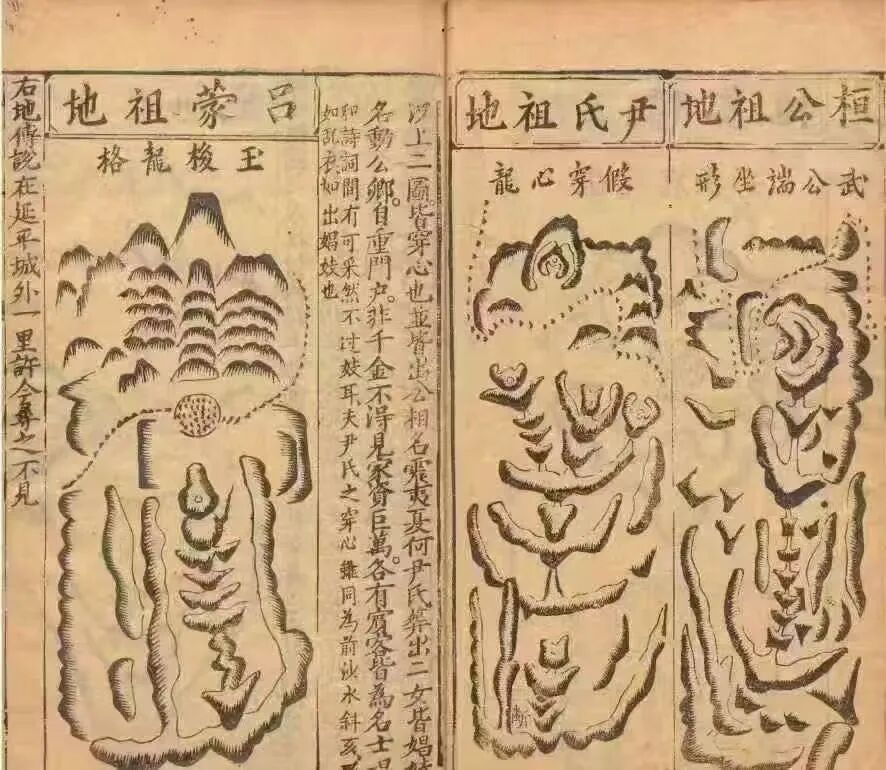 桓公祖地
武公端坐形
尹氏祖地
假穿心龍
断
沙上二圖皆穿心也並皆出公相名震夷夏何尹氏葬出二女皆娼妓
名動公卿自重門户非千金不得見家資巨萬各有賓客皆為名士唱
和詩詞間有可采然不过妓耳夫尹氏之穿心雖同為前沙水斜亥
如乱衣如出娼妓也
呂蒙祖地
玉梭龍格
右地傳説在延平城外一里許今尋之不見